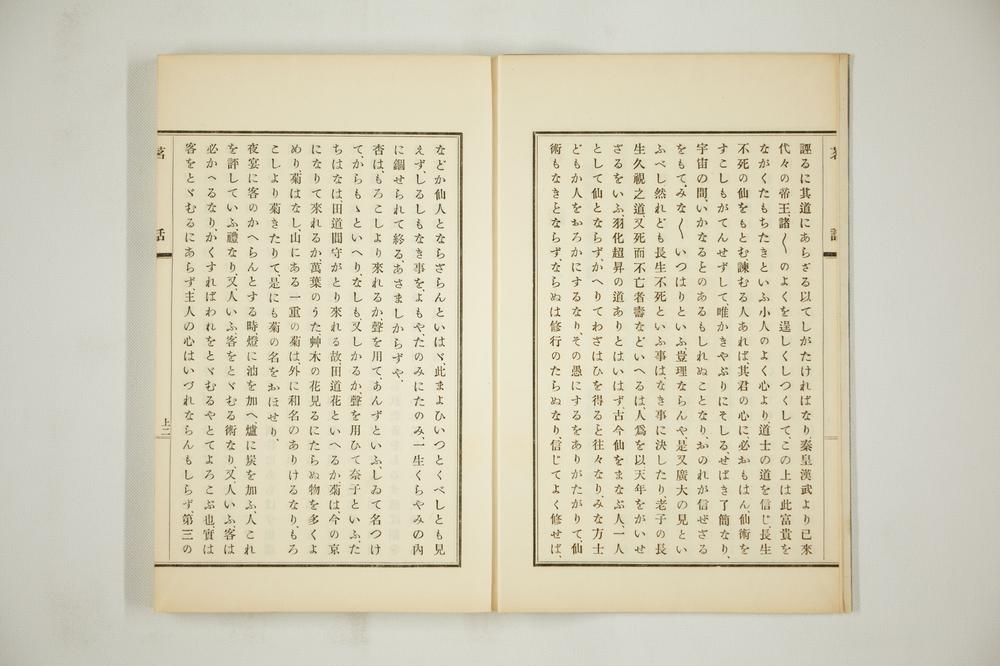 茗話
誣るに其道にあらざる以てしがたければなり、秦皇漢武より已來
代々の帝王、諸〳〵のよくを逞しくしつくして、この上は此富貴を
ながくたもちたきといふ小人のよく心より道士の道を信じ、長生
不死の仙をもとむ、諫むる人あれば、其君の心に、必おもはん、仙術を
すこしもがてんせずして、唯かきやぶりにそしる、せばき了簡なり、
宇宙の間、いかなるとのあるもしれぬことなり、おのれが信ぜざる
をもて、みな〳〵いつはりといふ、豈理ならんや、是又廣大の見とい
ふべし、然れども長生不死といふ事は、なき事に決したり、老子の長
生久視之道、又死而不亡者壽などいへるは、人爲を以天年をがいせ
ざるをいふ、羽化超昇の道ありとはいはず、古今仙をまなぶ人、一人
として仙とならず、かへりてわざはひを得ると往々なり、みな方士
どもか人をおろかにするなり、その愚にするをありがたがりて、仙
術もなきとならず、ならぬは修行のたらぬなり、信じてよく修せば、
などか仙人とならざらんといはゞ、此まよひいつとくべしとも見
えず、しるしもなき事を、よもや、たのみにたのみ、一生くらやみの內
に錮せられて終る、あさましからずや、
杏は、もろこしより來れるか、聲を用て、あんずといふ、しゐて名つけ
てからもゝといへり、なしも、又しかるか、聲を用ひて奈子といふ、た
ちはなは、田道間守がとり來れる故、田道花といへるか、菊は、今の京
になりて來れるか、萬葉のうた、艸木の花見るにたらぬ物を多くよ
めり、菊はなし、山にある一重の菊は、外に和名のありけるなり、もろ
こしより菊きたりて、是にも菊の名をおほせり、
夜宴に客のかへらんとする時、燈に油を加へ、爐に炭を加ふ、人これ
を評していふ、禮なり、又、人いふ、客をとゞむる術なり、又、人いふ、客は
必かへるなり、かくすればわれをとゞむるやとてよろこぶ也、實は
客をとゞむるにあらず、主人の心はいづれならんもしらず、第三の
茗話
上二